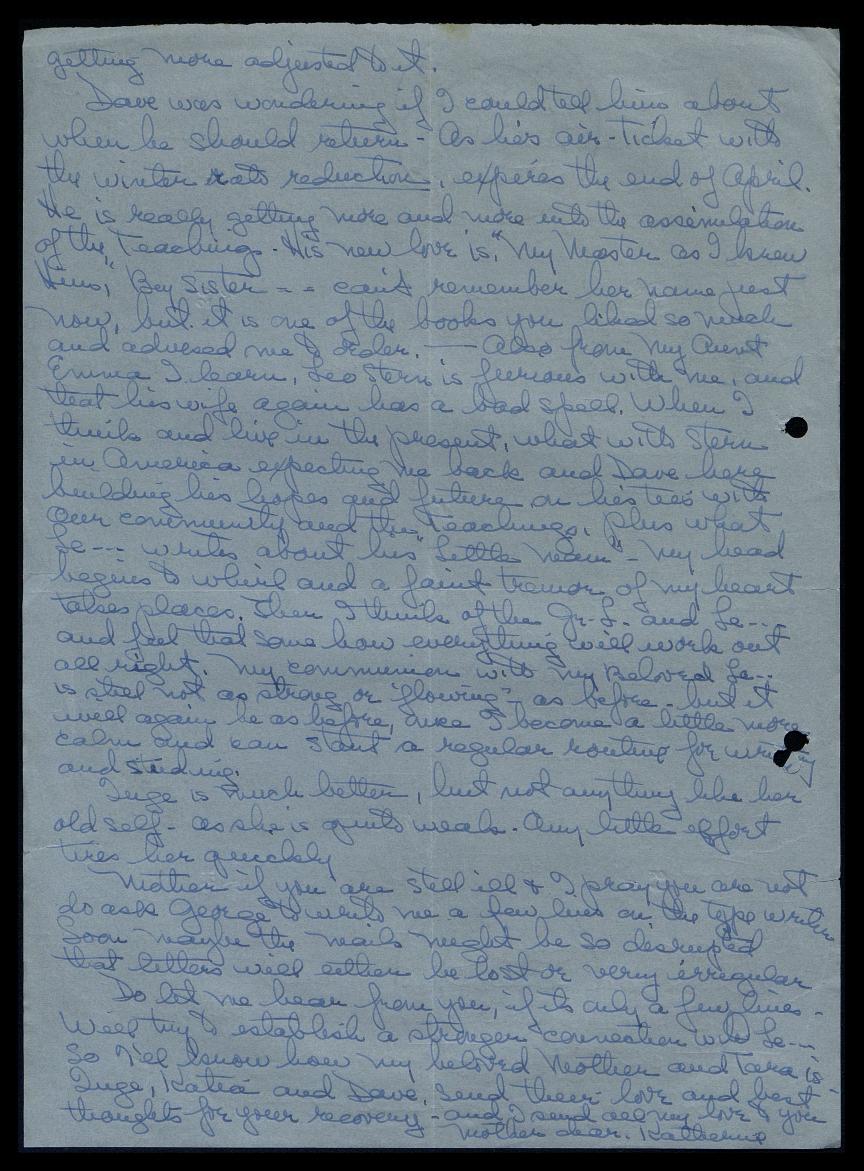 getting more adjusted to it.
Dave was wondering if I could tell him about
when he should return - As his air-ticket with
the winter rate reduction, expires the end of April.
He is really getting more and more into the assimilation
of the Teachings. His new love is, "My Master as I knew
Him," By Sister -- can't remember her name just
now, but it is one of the books you liked so much
and advised me to order. — Also from my Aunt
Emma I learn, Leo Stern is furious with me, and
that his wife again has a bad spell. When I
think and live in the present, what with Stern
in America expecting me back and Dave here
building his hopes and future on his ties with
our community and the Teachings, plus what
Le--- writes about his "Little Main" - my head
begins to whirl and a faint tremor of my heart
takes places. Then I think of the Gr. L. and Le---
and feel that some how everything will work out
all right. My communion with my Beloved Le---
is still not as strong or "flowing" as before - but it
will again be as before, once I become a little more
calm and can start a regular routine for writing
and studing.
Inge is much better, but not anything like her
old self - as she is quite weak. Any little effort
tires her quickly
Mother if you are still ill & I pray you are not
do ask George to write me a few lines on the type writer
Soon maybe the mails might be so desrupted
that letters will either be lost or very irregular
Do let me hear from you, if its only a few lines -
Will try to establish a stronger connection with Le---
So I'll know how my beloved Mother and Tara is -
Inge, Katia and Dave, send their love and best
thoughts for your recovery - and I send all my love to you
Mother dear. Katherine